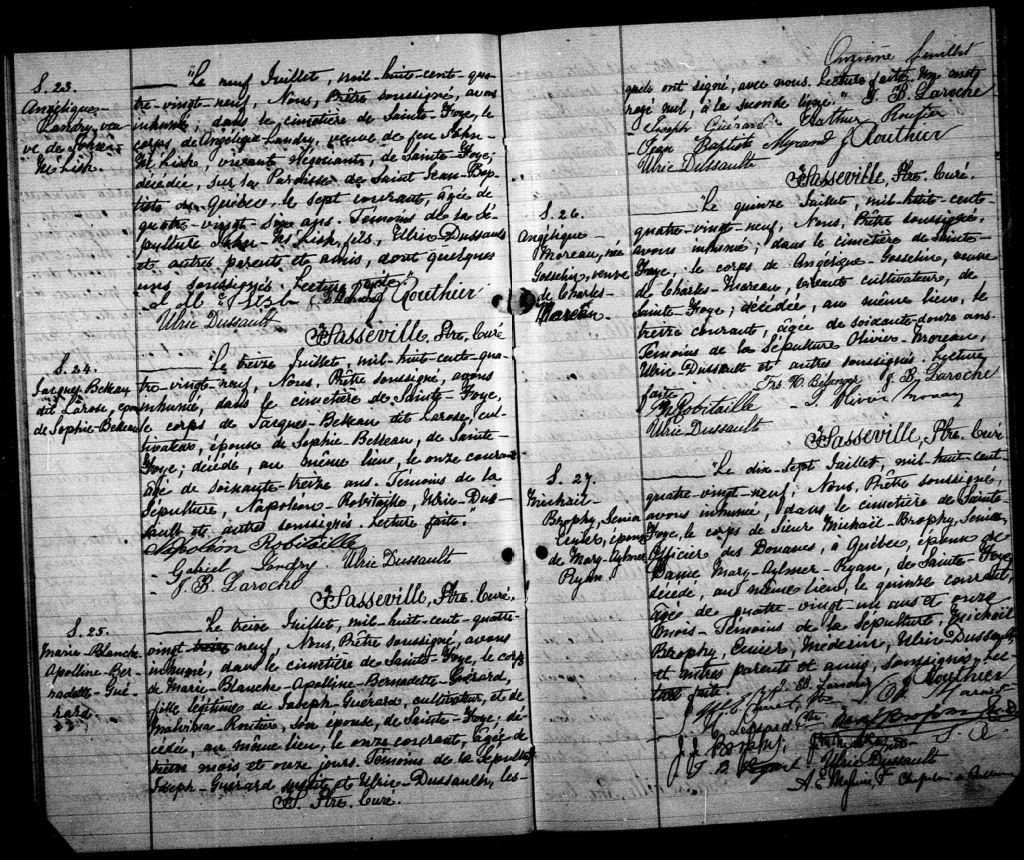 S. 23.
Angélique-
Landry, veu-
ve de John-
McLish.
"Le neuf Juillet, mil-huit-cent-qua-
tre-vingt-neuf, Nous, Prêtre soussigné, avons
inhumé, dans le cimetière de Sainte-Foye, le
corps de Angélique-Landry, veuve de feu John-
McLish, vivant Négociant, de Sainte-Foye;
décédée, sur la Paroisse de Saint-Jean-Bap-
tiste de Québec, le sept courant, âgée de
quatre-vingt-six ans. Témoins de la Sé-
pulture John-McLish, fils, Ulric Dussault
et autres parents et amis, dont quelques
uns soussignés. Lecture faite."
Routhier
Ulric Dussault
H. Sasseville, Ptre. Curé
S. 24.
Jacques-Belleau
dit Larose, époux
de Sophie-Belleau
"Le treize Juillet, mil-huit-cent-qua-
tre-vingt-neuf, Nous, Prêtre soussigné, avons
inhumé, dans le cimetière de Sainte-Foye,
le corps de Jacques-Belleau dit Larose, cul-
tivateur, épouse de Sophie-Belleau, de Sainte-
Foye; décédé, au même lieu, le onze courant
âgé de soixante-treize ans. Témoins de la
Sépulture, Napoléon-Robitaille, Ulric-Dus-
sault et autres soussignés. Lecture faite."
Napoléon Robitaille
Gabriel Landry. Ulric Dussault
J. B. Laroche
H. Sasseville, Ptre. Curé.
S. 25.
Marie-Blanche-
Apolline-Ber-
nadette-Gué-
rard.
"Le treize Juillet, mil-huit-cent-quatre-
vingt neuf, Nous, Prêtre soussigné, avons
inhumé, dans le cimetière de Sainte-Foye, le corps
de Marie-Blanche-Apolline-Bernadette-Guérard,
fille légitime de Joseph-Guérard, cultivateur, et de
Malvina-Routier, son épouse, de Sainte-Foye; dé-
cédée, au même lieu, le onze courant, âgée de
mois et onze jours. Témoins de la Sépulture
Joseph-Guérard et Ulric-Dussault, les-
H. S. Ptre. Curé.
Onzième feuillet
quels ont signé, avec nous. Lecture faite. Un mot
rayé nul, à la seconde ligne." J. B. Laroche
Joseph Guérard Routier
Jean Baptiste Myrand J Routhier
Ulric Dussault
H. Sasseville, Ptre. Curé.
S. 26.
Angélique-
Moreau, née
Gosselin, veuve
de Charles-
Moreau.
"Le quinze Juillet, mil-huit-cent-
quatre-vingt-neuf, Nous, Prêtre soussigné,
avons inhumé, dans le cimetière de Sainte-
Foye, le corps de Angélique-Gosselin, veuve
de Charles-Moreau, vivant cultivateur, de
Sainte-Foye; décédée, au même lieu, le
treize courant, âgée de soixante-douze ans.
Témoins de la Sépulture Olivier-Moreau,
Ulric Dussault et autres soussignés. Lecture
faite. Frs. X. Bélanger J. B. Laroche
N. Robitaille
Ulric Dussault
H. Sasseville, Ptre. Curé
S. 27.
Michaël-
Brophy, Senior
époux
de Mary-Aylmer
Ryan
"Le dix-sept Juillet, mil-huit-cent-
quatre-vingt-neuf, Nous, Prêtre soussigné,
avons inhumé, dans le cimetière de Sainte-
Foye, le corps de Sieur Michaël-Brophy, Senior,
Officier des Douanes, à Québec, époux de
Dame Mary-Aylmer-Ryan, de Sainte-Foye,
décédé, au même lieu, le quinze courant,
âgé de quatre-vingt-un ans et onze
mois. Témoins de la Sépulture, Michaël
Brophy, Médecin, Ulric Dussault
et autres parents et amis, soussignés. Lec-
ture faite. Routhier
J J Brophy,
Ulric Dussault